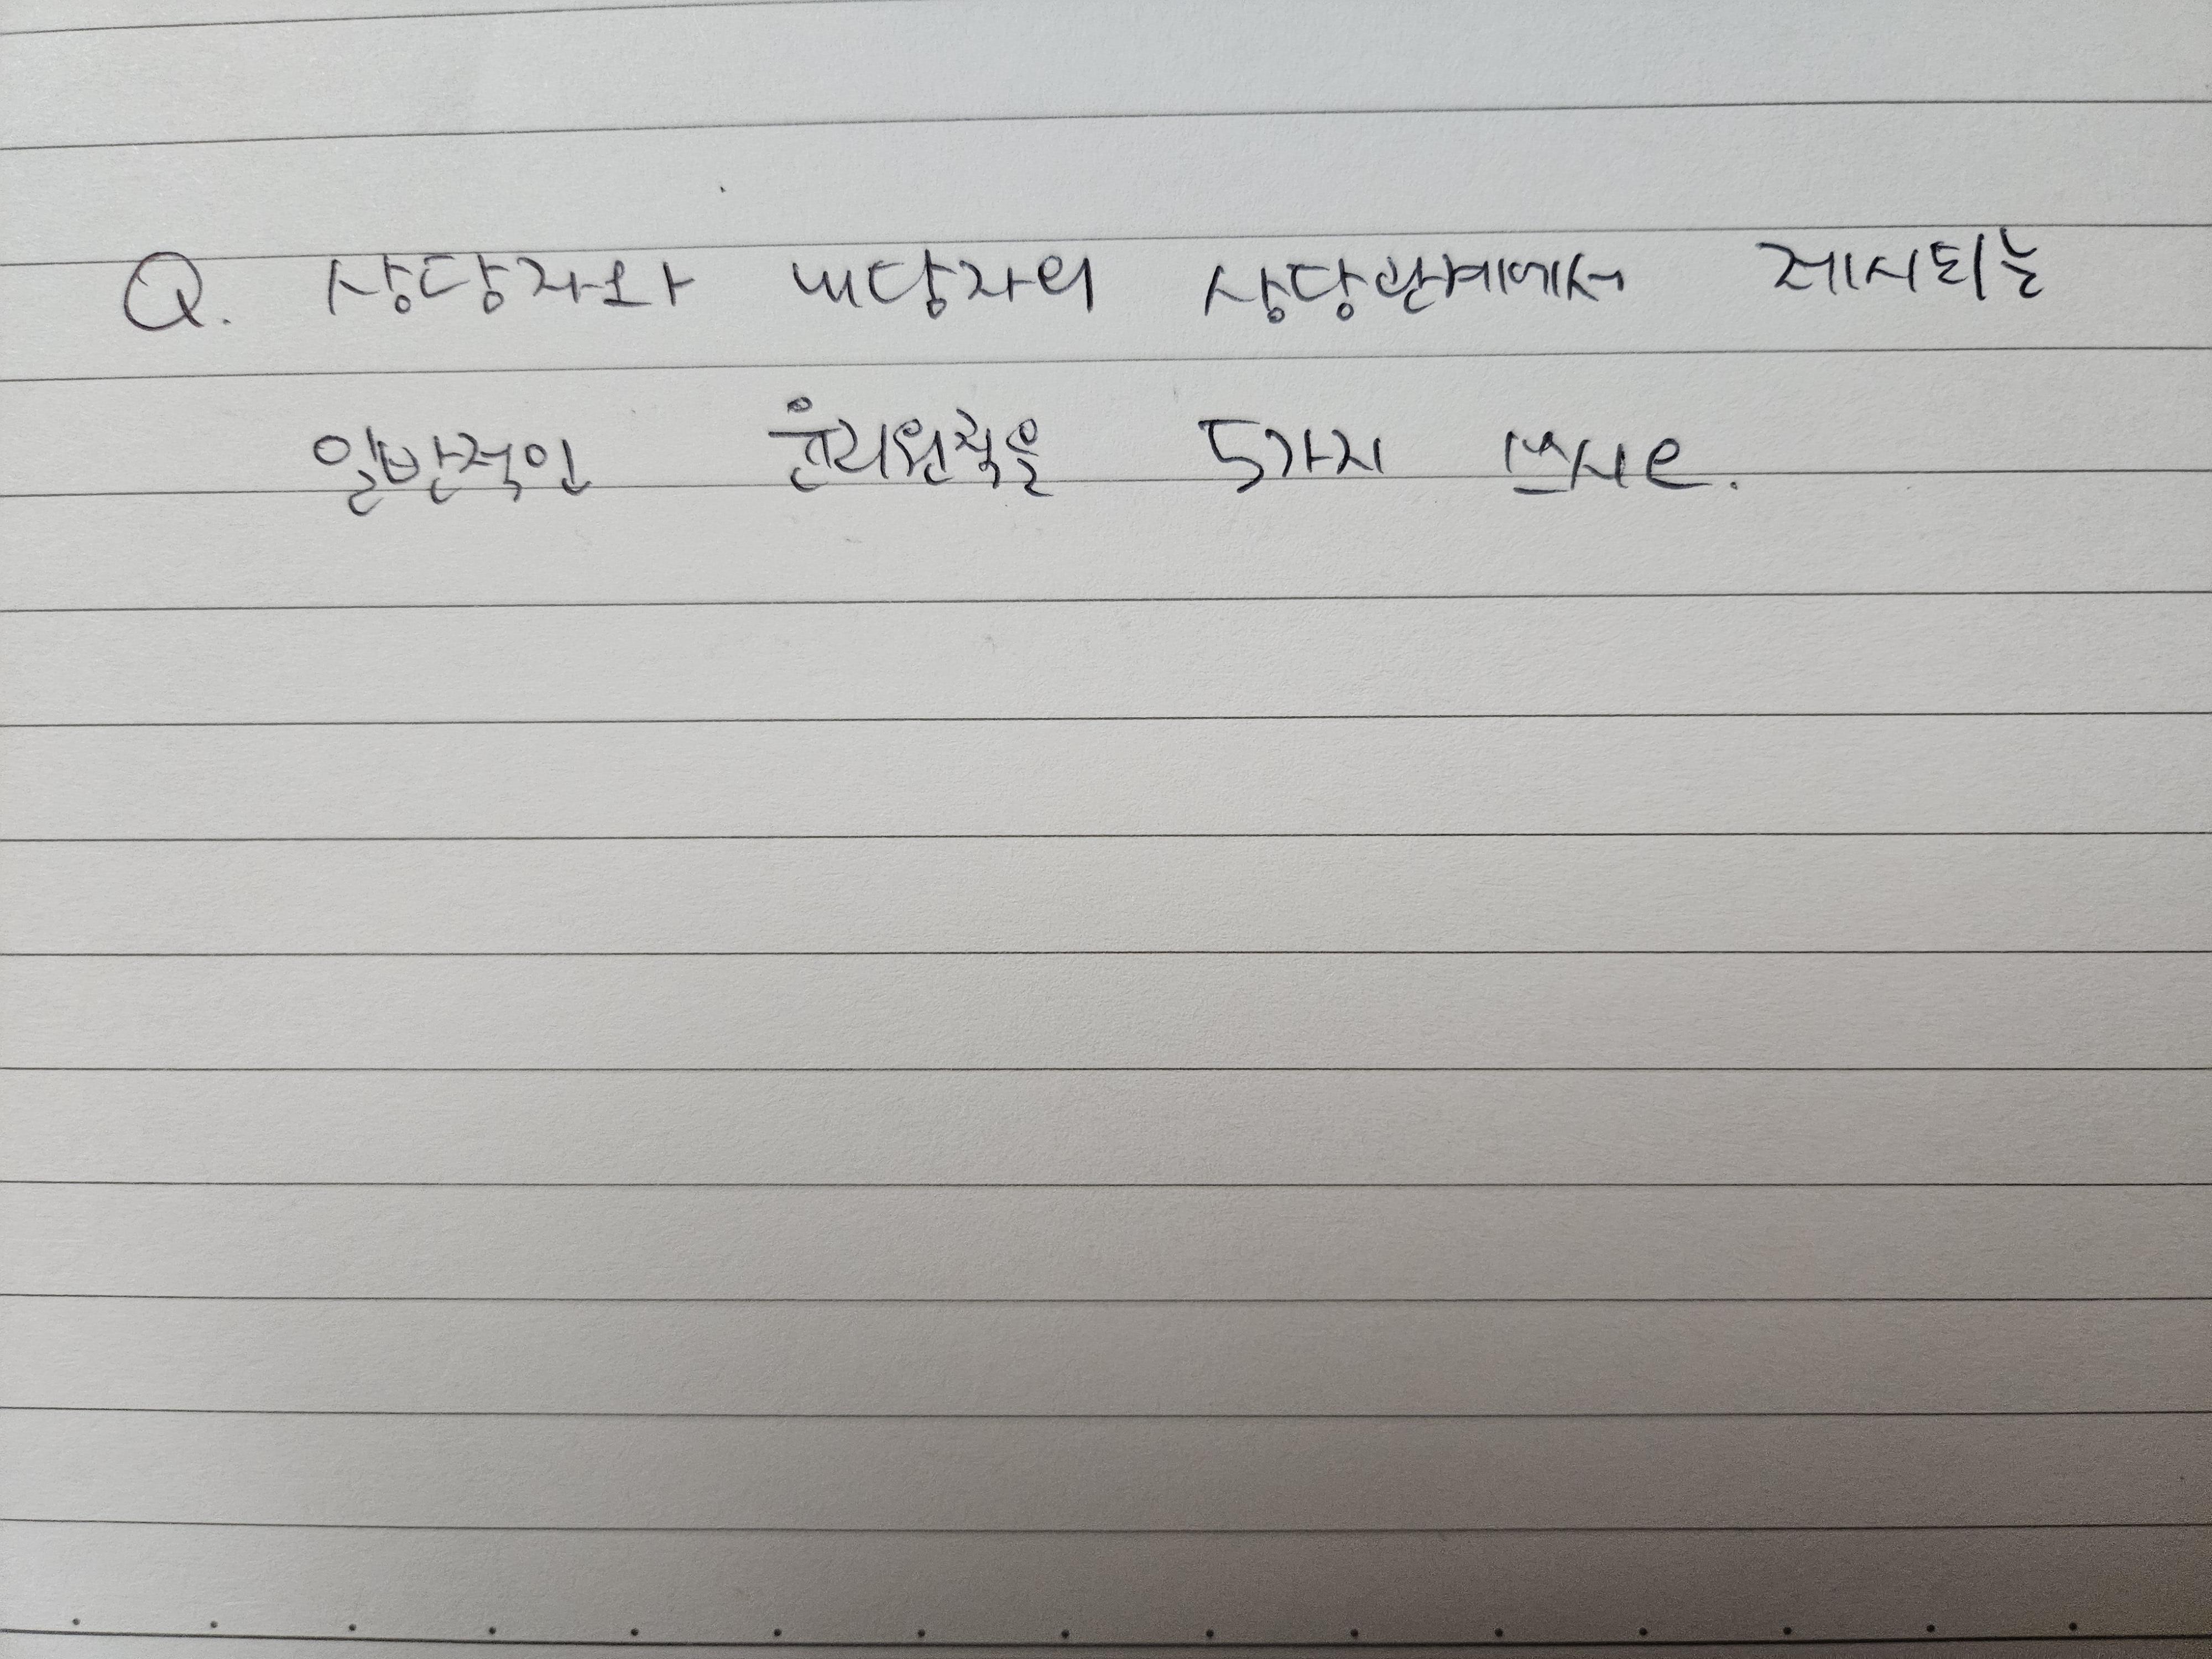 Q. 상담자와 내담자의 상담관계에서 제시되는
일반적인 윤리원칙을 5가지 쓰시오.